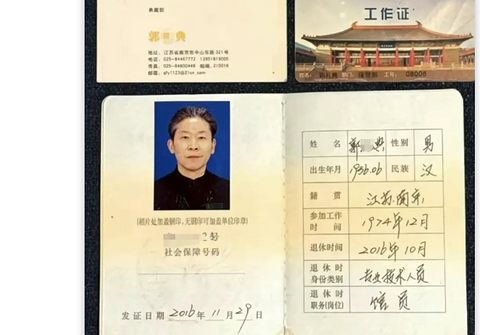 典藏部
郭 典
地址:江苏省南京市中山东路321号
电话:025-84467772 13851819000
传真:025-84806448 邮编:210016
邮箱:
工作证
工号: 08006
(相片处加盖钢印,无钢印可加盖单位印章)
2号
社会保障号码
发证日期 2016年11月29日
姓名 郭 典 性别 男
出生年月 1956.06 民族 汉
籍贯 江苏南京
参加工作时间 1974年12月
退休时间 2016年10月
退休时身份类别 专业技术人员
退休时职务(岗位) 馆员